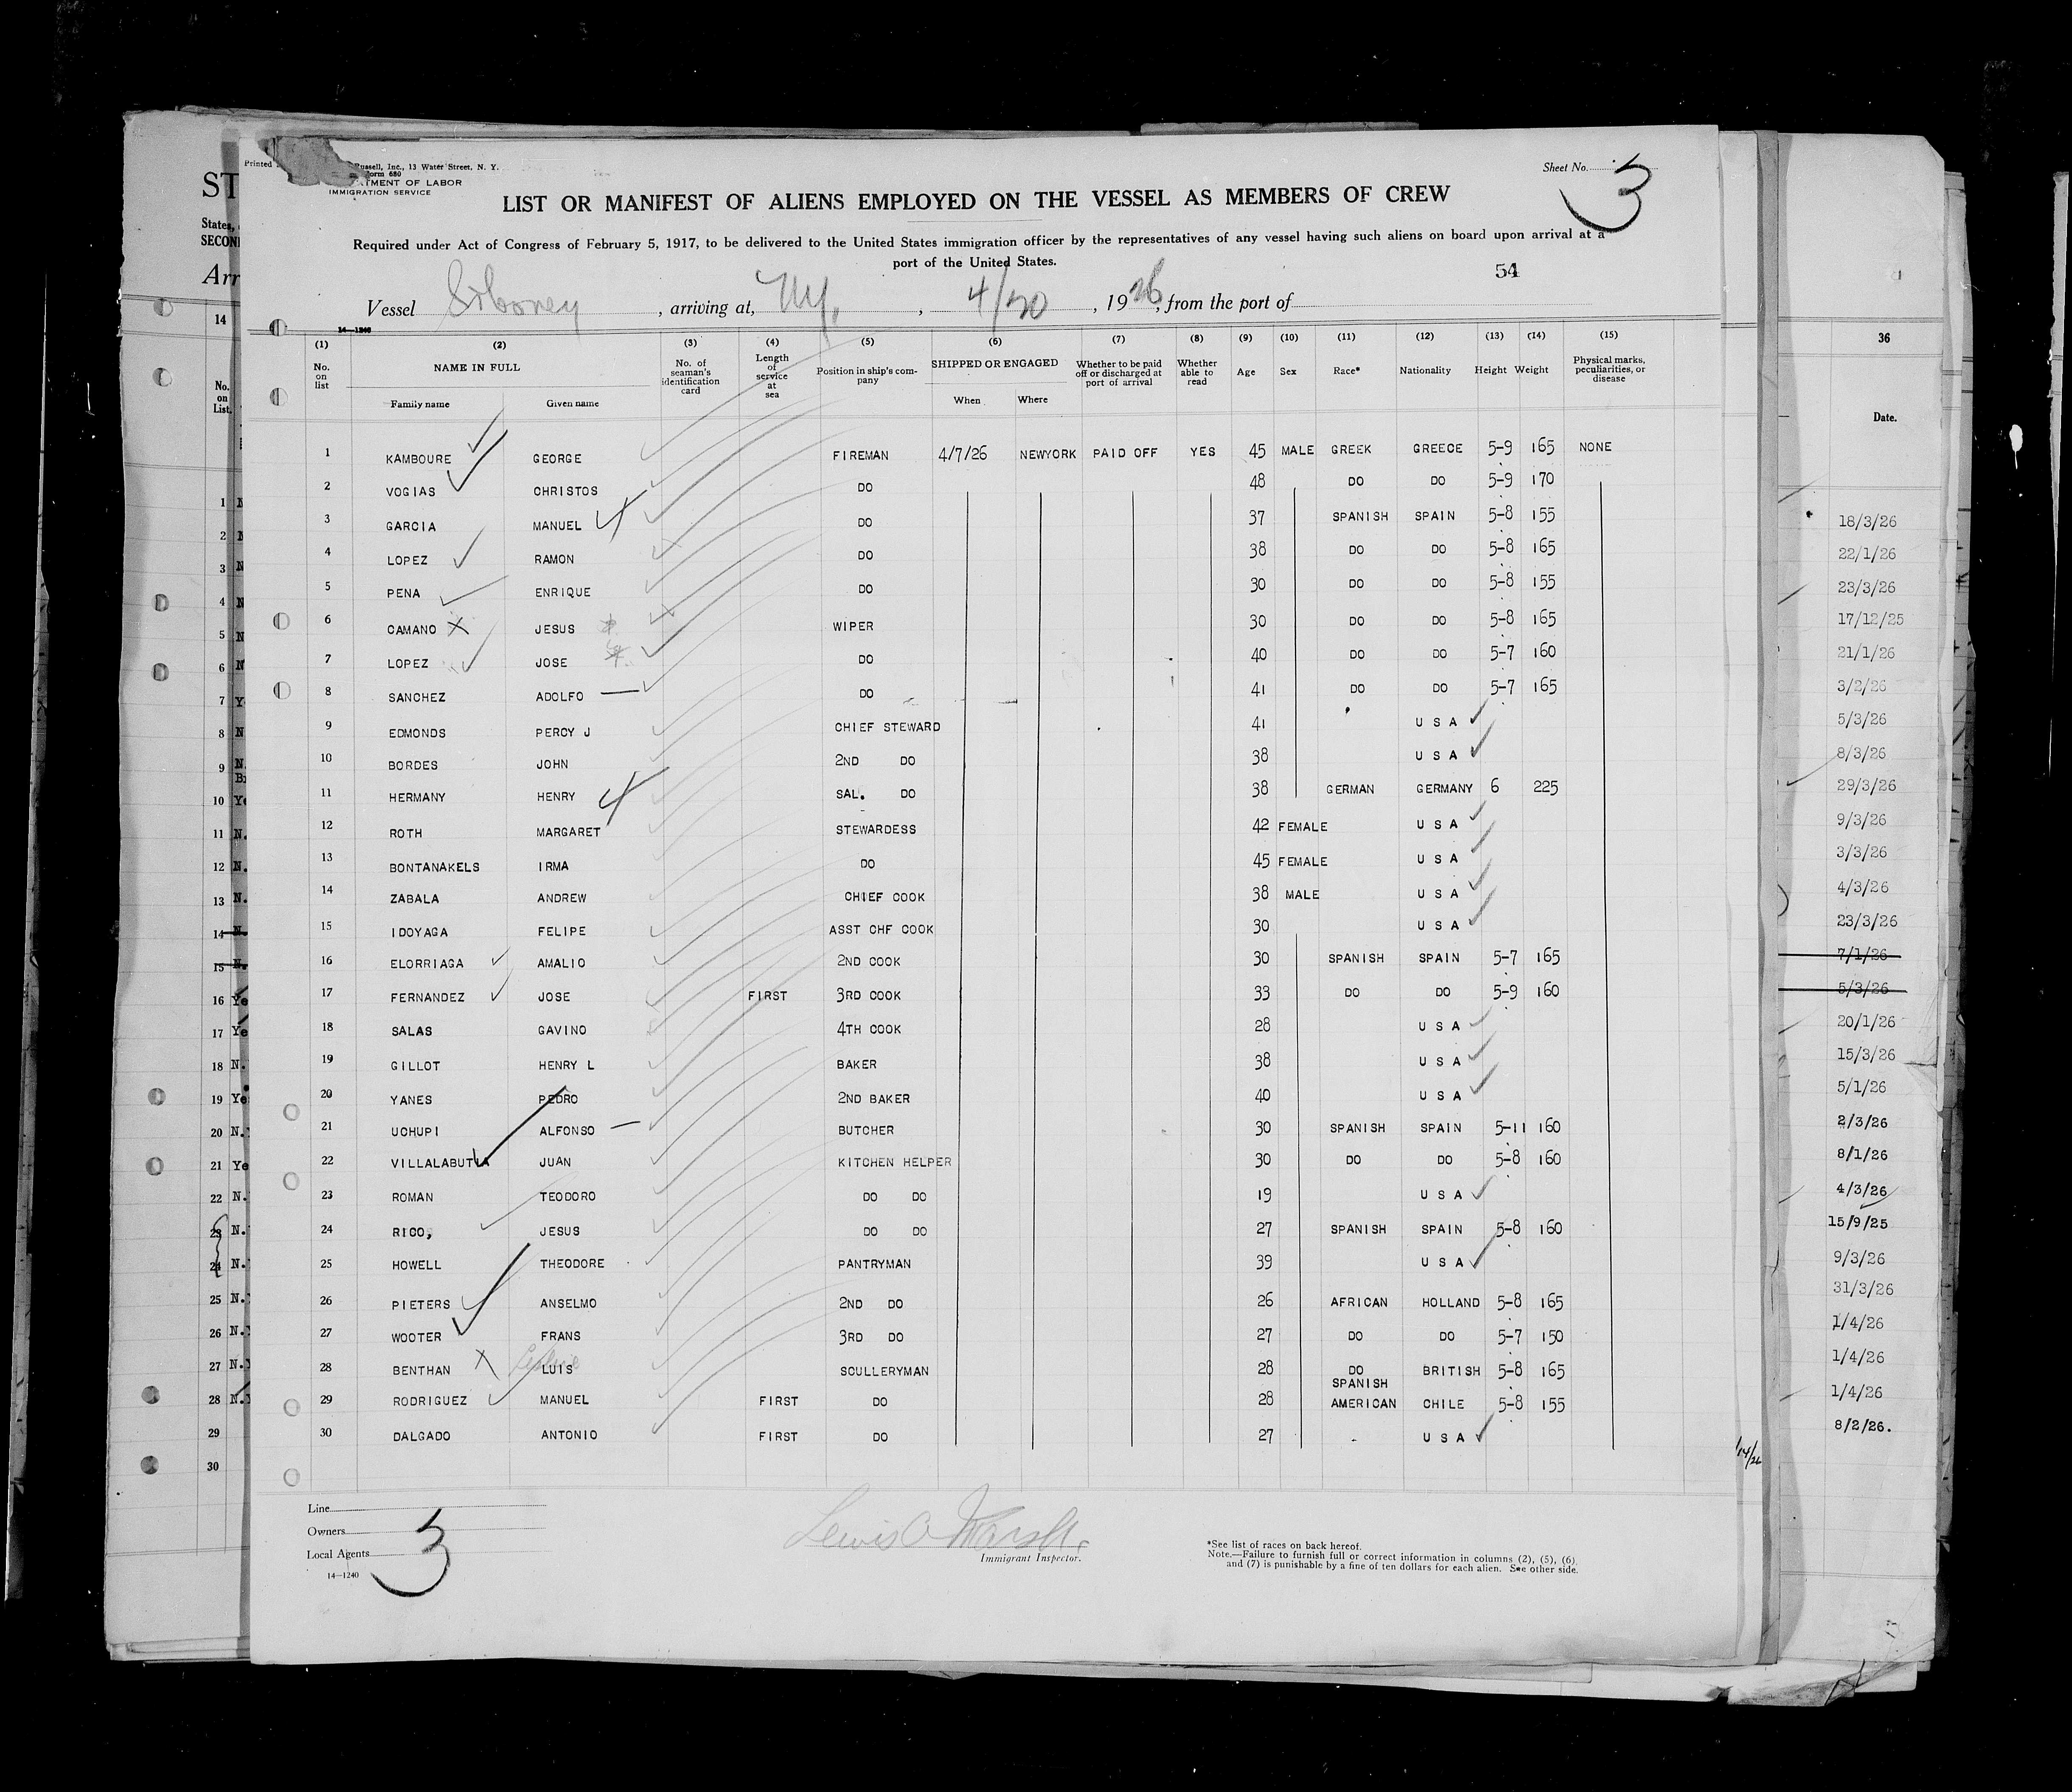 Printed
Russell, Inc., 13 Water Street, N. Y.
Form 680
TMENT OF LABOR
IMMIGRATION SERVICE
Sheet No. 3
LIST OR MANIFEST OF ALIENS EMPLOYED ON THE VESSEL AS MEMBERS OF CREW
Required under Act of Congress of February 5, 1917, to be delivered to the United States immigration officer by the representatives of any vessel having such aliens on board upon arrival at a
port of the United States.
54
Vessel Siboney, arriving at, NY, 4/20, 1926, from the port of
14—1240
(1) (2) (3) (4) (5) (6) (7) (8) (9) (10) (11) (12) (13) (14) (15)
No. on list NAME IN FULL Family name Given name No. of seaman's identification card Length of service at sea Position in ship's company SHIPPED OR ENGAGED When Where Whether to be paid off or discharged at port of arrival Whether able to read Age Sex Race* Nationality Height Weight Physical marks, peculiarities, or disease
1 KAMBOURE GEORGE FIREMAN 4/7/26 NEWYORK PAID OFF YES 45 MALE GREEK GREECE 5-9 165 NONE
2 VOGIAS CHRISTOS DO 48 DO DO 5-9 170
3 GARCIA MANUEL DO 37 SPANISH SPAIN 5-8 155
4 LOPEZ RAMON DO 38 DO DO 5-8 165
5 PENA ENRIQUE DO 30 DO DO 5-8 155
6 CAMANO JESUS WIPER 30 DO DO 5-8 165
7 LOPEZ JOSE DO 40 DO DO 5-7 160
8 SANCHEZ ADOLFO DO 41 DO DO 5-7 165
9 EDMONDS PERCY J CHIEF STEWARD 41 U S A
10 BORDES JOHN 2ND DO 38 U S A
11 HERMANY HENRY SAL. DO 38 GERMAN GERMANY 6 225
12 ROTH MARGARET STEWARDESS 42 FEMALE U S A
13 BONTANAKELS IRMA DO 45 FEMALE U S A
14 ZABALA ANDREW CHIEF COOK 38 MALE U S A
15 IDOYAGA FELIPE ASST CHF COOK 30 U S A
16 ELORRIAGA AMALIO 2ND COOK 30 SPANISH SPAIN 5-7 165
17 FERNANDEZ JOSE FIRST 3RD COOK 33 DO DO 5-9 160
18 SALAS GAVINO 4TH COOK 28 U S A
19 GILLOT HENRY L BAKER 38 U S A
20 YANES PEDRO 2ND BAKER 40 U S A
21 UCHUPI ALFONSO BUTCHER 30 SPANISH SPAIN 5-11 160
22 VILLALABUTIA JUAN KITCHEN HELPER 30 DO DO 5-8 160
23 ROMAN TEODORO DO DO 19 U S A
24 RICO, JESUS DO DO 27 SPANISH SPAIN 5-8 160
25 HOWELL THEODORE PANTRYMAN 39 U S A
26 PIETERS ANSELMO 2ND DO 26 AFRICAN HOLLAND 5-8 165
27 WOOTER FRANS 3RD DO 27 DO DO 5-7 150
28 BENTHAN LUIS SCULLERYMAN 28 DO BRITISH 5-8 165
29 RODRIGUEZ MANUEL FIRST DO 28 SPANISH AMERICAN CHILE 5-8 155
30 DALGADO ANTONIO FIRST DO 27 U S A
Line
Owners
Local Agents
3
14—1240
Immigrant Inspector.
*See list of races on back hereof.
Note.—Failure to furnish full or correct information in columns (2), (5), (6),
and (7) is punishable by a fine of ten dollars for each alien. See other side.
ST
States,
SECON
Arr
14
No. on List.
1
2
3
4
5
6
7
8
9
10
11
12
13
14
15
16
17
18
19
20
21
22
23
24
25
26
27
28
29
30
36
Date.
18/3/26
22/1/26
23/3/26
17/12/25
21/1/26
3/2/26
5/3/26
8/3/26
29/3/26
9/3/26
3/3/26
4/3/26
23/3/26
7/1/26
5/3/26
20/1/26
15/3/26
5/1/26
2/3/26
8/1/26
4/3/26
15/9/25
9/3/26
31/3/26
1/4/26
1/4/26
1/4/26
8/2/26.